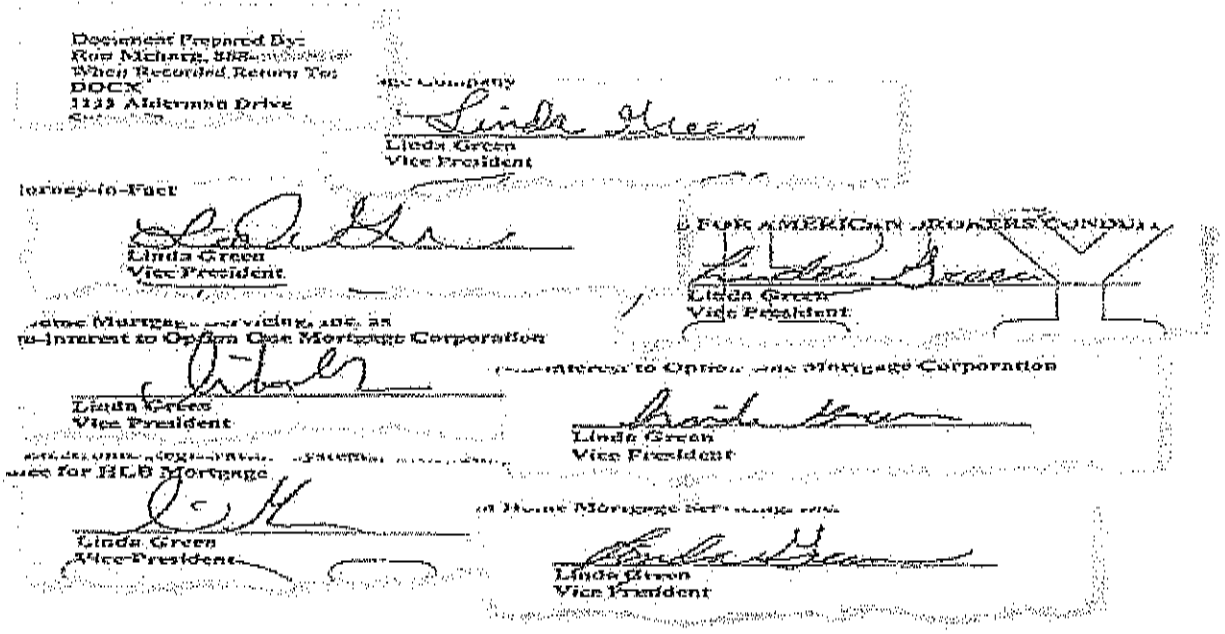 Document Prepared By:
Ron Meharg, 888-
When Recorded Return To:
DOCX
1111 Alderman Drive
Company
Linda Green
Linda Green
Vice President
torney-in-Fact
Linda Green
Vice President
FOR AMERICAN BROKERS CONDUIT
Linda Green
Linda Green
Vice President
ome Mortgage Servicing, Inc. as
n-interest to Option One Mortgage Corporation
Linda Green
Vice President
interest to Option One Mortgage Corporation
Linda Green
Vice President
Systems,
nee for HLB Mortgage
Linda Green
Vice President
n Home Mortgage Servicing, Inc.
Linda Green
Linda Green
Vice President